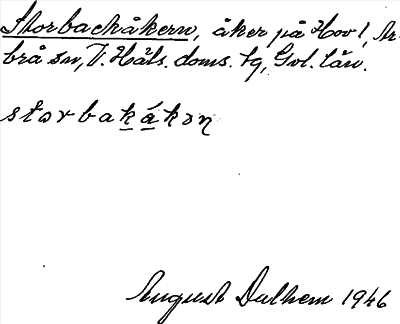 Storbackåkern, åker på Hov 1, Ar-
brå sn, V. Häls. doms. tg, Gvl. län.
storbakákən
August Dalhem 1946